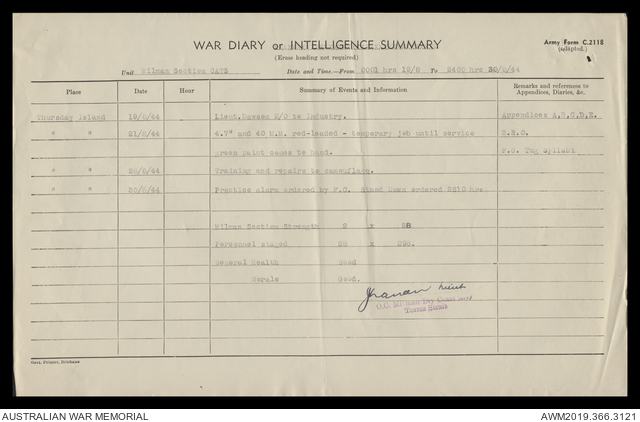 WAR DIARY or INTELLIGENCE SUMMARY
(Erase heading not required)
Army Form C.2118
(adapted.)
Unit Milman Section CATS
Date and Time—From 0001 hrs 19/8 To 2400 hrs 30/8/44
Place Date Hour Summary of Events and Information Remarks and references to Appendices, Diaries, &c.
Thursday Island 19/8/44 Lieut. R/O to Industry. Appendices A,B,C,D,E.
" " 21/8/44 4.7" and 40 M.M. red-leaded - temporary job until service
green paint comes to hand.
" " 28/8/44 Training and repairs to camouflage.
" " 30/8/44 Practice alarm ordered by F.C. Stand Down ordered hrs
Milman Section Strength 2 x 58
Personnel staged x
General Health Good
Morale Good.
Lieut
Torres Strait
Govt. Printer, Brisbane
AUSTRALIAN WAR MEMORIAL
AWM2019.366.3121